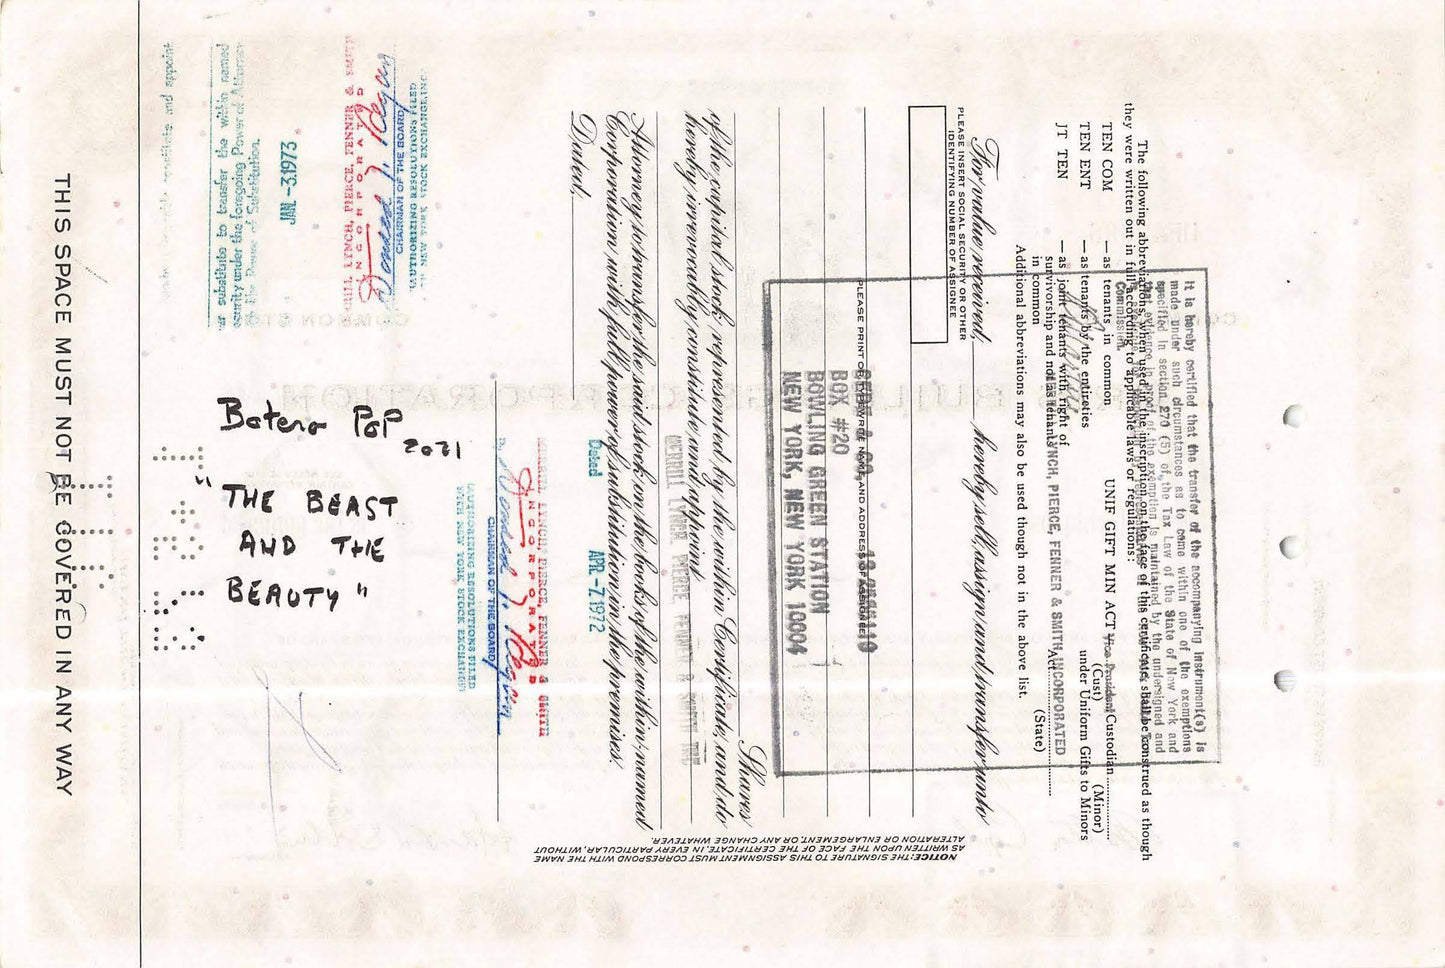 The following abbreviations, when used in the inscription on the face of this certificate, shall be construed as though
they were written out in full according to applicable laws or regulations:
TEN COM — as tenants in common
TEN ENT — as tenants by the entireties
JT TEN — as joint tenants with right of
survivorship and not as tenants
in common
UNIF GIFT MIN ACT
Custodian
(Cust) (Minor)
under Uniform Gifts to Minors
Act
(State)
Additional abbreviations may also be used though not in the above list.
It is hereby certified that the transfer of the accompanying instrument(s) is
made under such circumstances as to come within one of the exemptions
specified in section 270 (5) of the Tax Law of the State of New York and
that evidence in proof of the exemption is maintained by the undersigned and
Commission.
LYNCH, PIERCE, FENNER & SMITH INCORPORATED
Vice President
For value received, hereby sell, assign and transfer unto
PLEASE INSERT SOCIAL SECURITY OR OTHER
IDENTIFYING NUMBER OF ASSIGNEE
PLEASE PRINT OR TYPEWRITE NAME AND ADDRESS OF ASSIGNEE
CEDE & CO.
BOX #20
BOWLING GREEN STATION
NEW YORK, NEW YORK 10004
Shares
of the capital stock represented by the within Certificate, and do
hereby irrevocably constitute and appoint
MERRILL LYNCH PIERCE, FENNER & SMITH INC
Attorney to transfer the said stock on the books of the within-named
Corporation with full power of substitution in the premises.
Dated,
Dated APR -7 1972
MERRILL LYNCH, PIERCE, FENNER & SMITH
INCORPORATED
Donald T. Regan
CHAIRMAN OF THE BOARD
AUTHORIZING RESOLUTIONS FILED
WITH NEW YORK STOCK EXCHANGE
NOTICE: THE SIGNATURE TO THIS ASSIGNMENT MUST CORRESPOND WITH THE NAME
AS WRITTEN UPON THE FACE OF THE CERTIFICATE, IN EVERY PARTICULAR, WITHOUT
ALTERATION OR ENLARGEMENT, OR ANY CHANGE WHATEVER.
constitute and appoint
substitute to transfer the within named
security under the foregoing Power of Attorney
the Power of Substitution.
JAN -3 1973
LYNCH, PIERCE, FENNER &
INCORPORATED
Donald T. Regan
CHAIRMAN OF THE BOARD
AUTHORIZING RESOLUTIONS FILED
NEW YORK STOCK EXCHANGE
Botero Pop
2021
"THE BEAST
AND THE
BEAUTY"
THIS SPACE MUST NOT BE COVERED IN ANY WAY